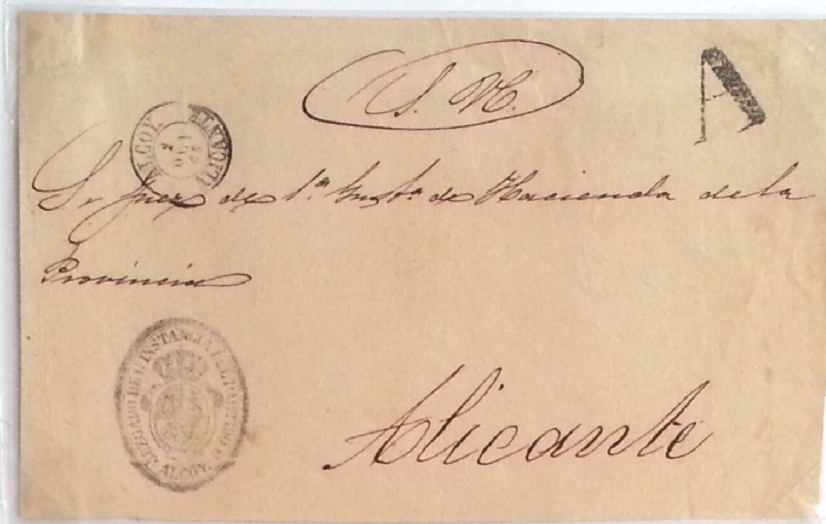 S. N.
A
ALCOY.
ALICANTE
Sr Juez de 1ª Instª de Hacienda de la
Provincia
JUZGADO DE 1ª INSTANCIA DEL PARTIDO DE
ALCOY.
Alicante